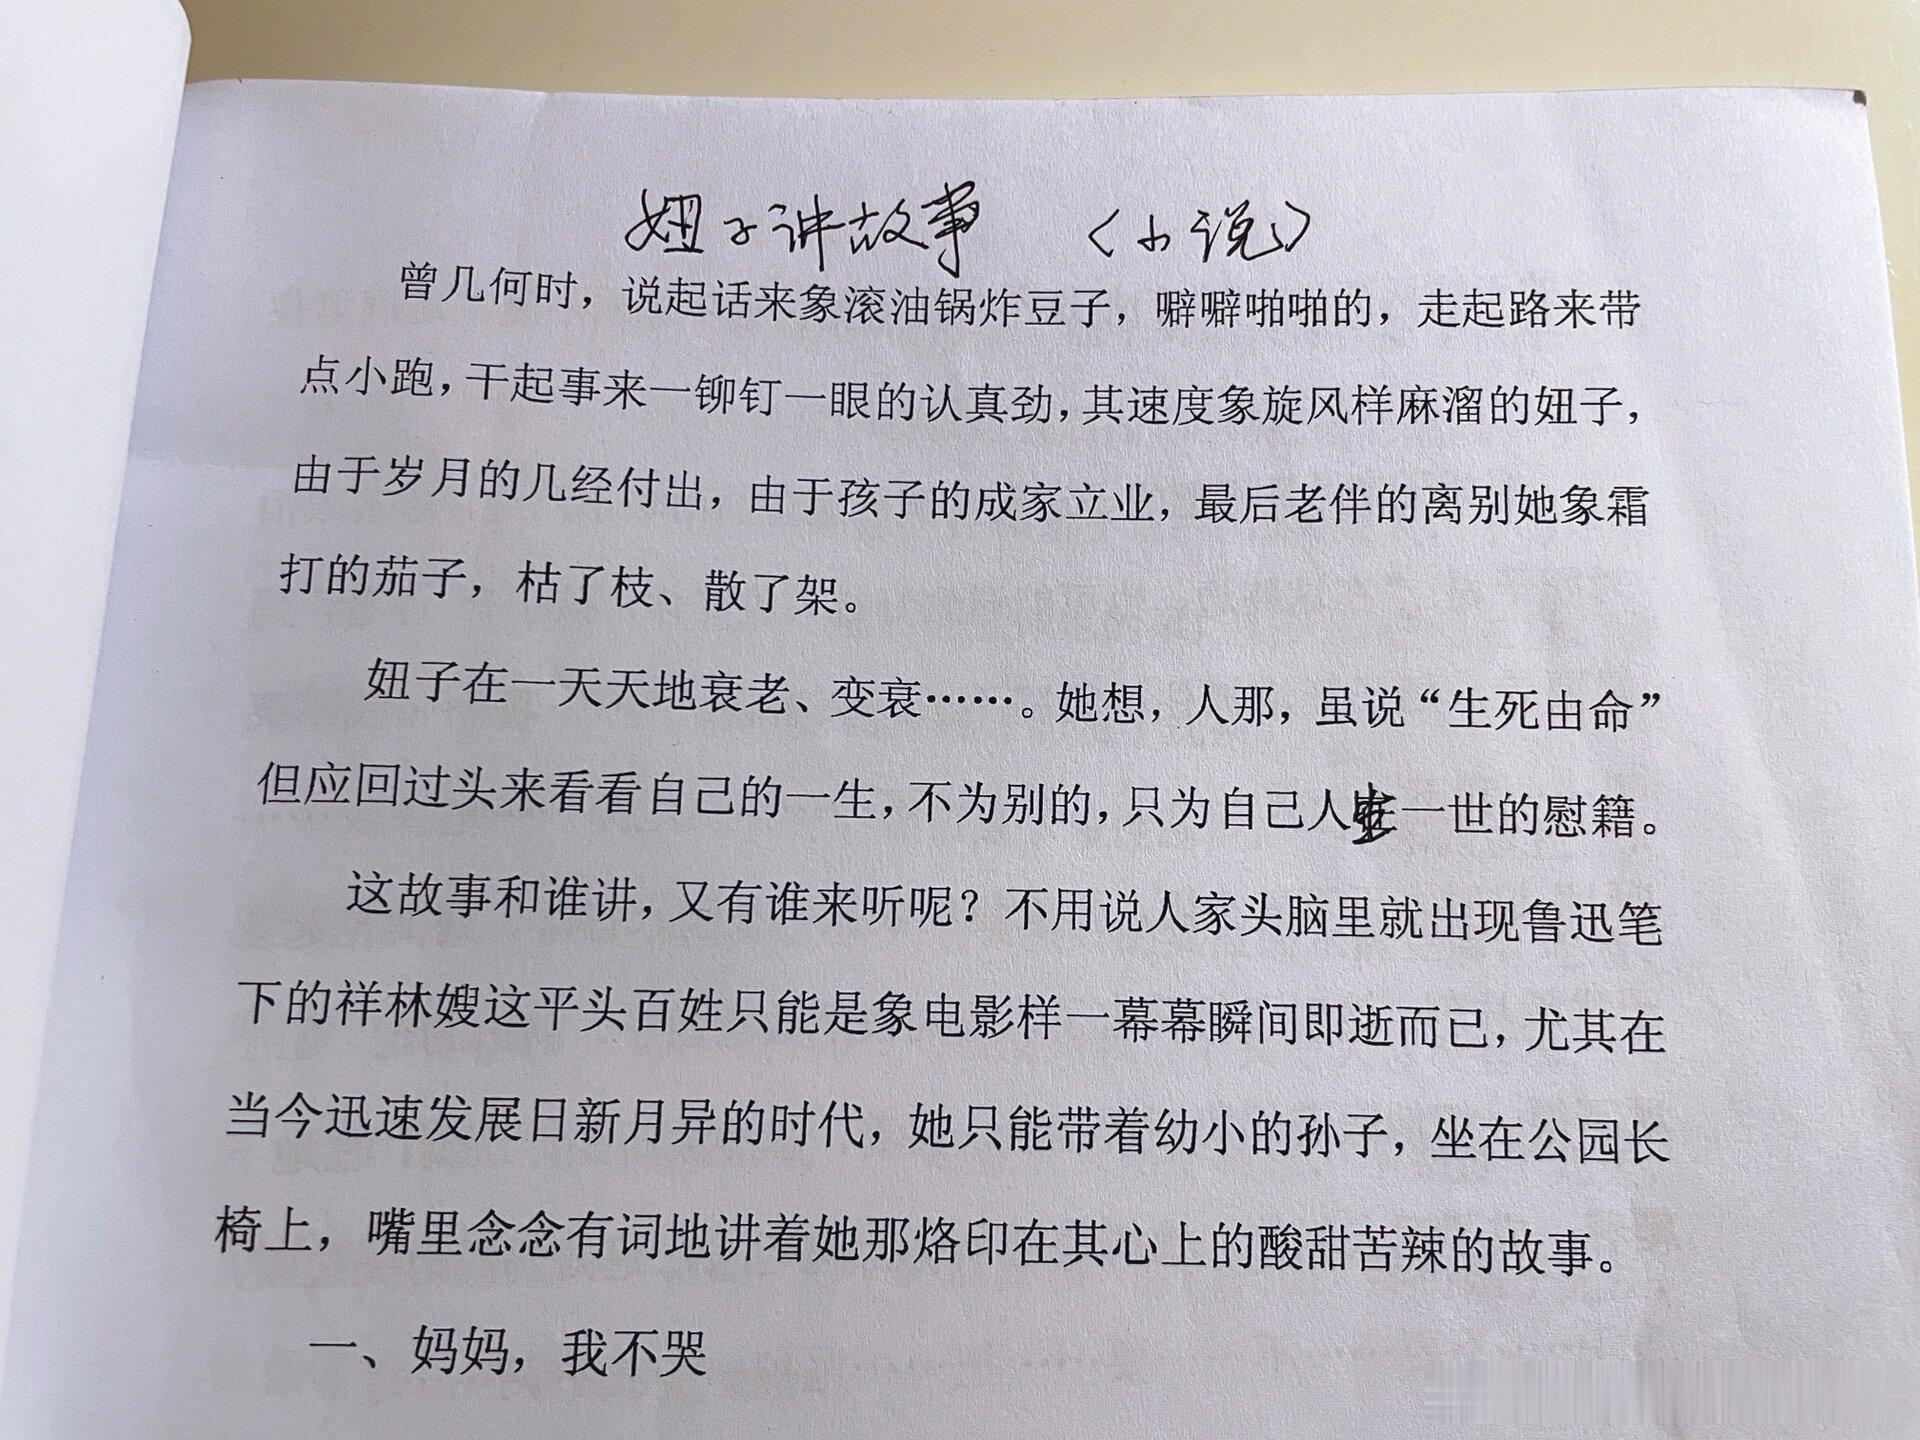 妞子讲故事 〈小说〉
曾几何时，说起话来象滚油锅炸豆子，噼噼啪啪的，走起路来带
点小跑，干起事来一铆钉一眼的认真劲，其速度象旋风样麻溜的妞子，
由于岁月的几经付出，由于孩子的成家立业，最后老伴的离别她象霜
打的茄子，枯了枝、散了架。
妞子在一天天地衰老、变衰……。她想，人那，虽说“生死由命”
但应回过头来看看自己的一生，不为别的，只为自己人生一世的慰籍。
这故事和谁讲，又有谁来听呢？不用说人家头脑里就出现鲁迅笔
下的祥林嫂这平头百姓只能是象电影样一幕幕瞬间即逝而已，尤其在
当今迅速发展日新月异的时代，她只能带着幼小的孙子，坐在公园长
椅上，嘴里念念有词地讲着她那烙印在其心上的酸甜苦辣的故事。
一、妈妈，我不哭